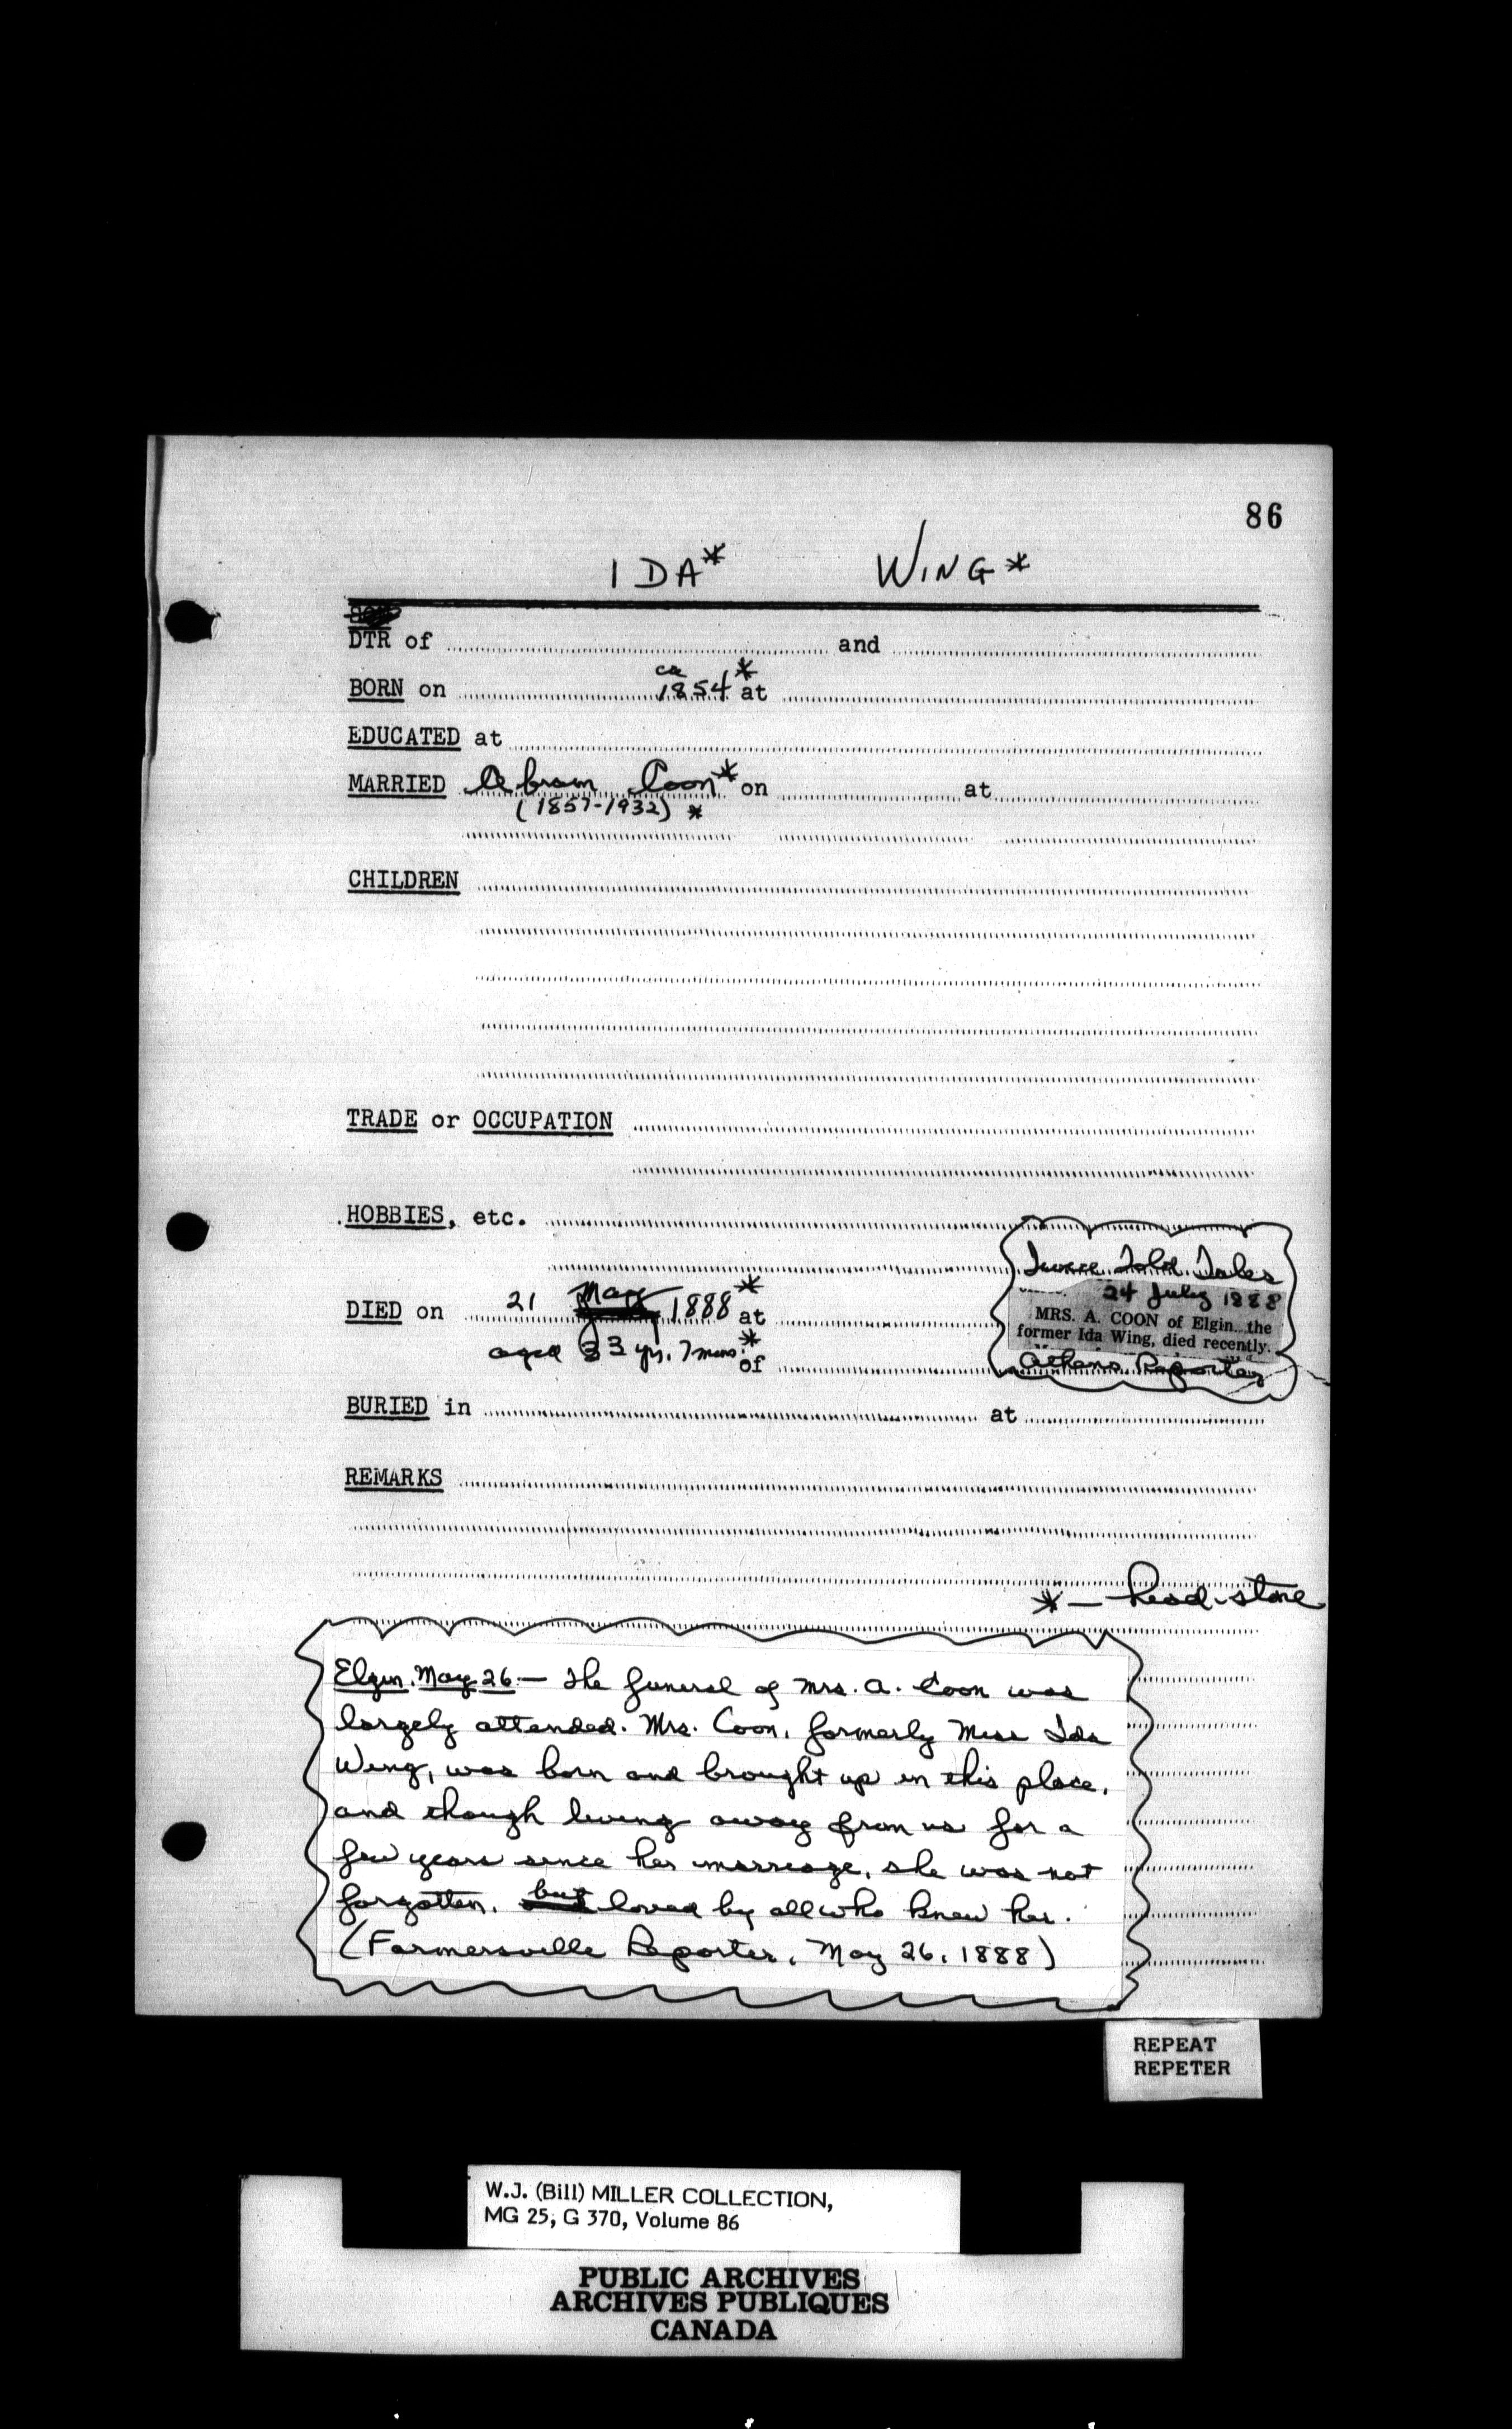 86
IDA* WING*
DTR of and
BORN on ca 1854* at
EDUCATED at
MARRIED Abram Coon* on at
(1857-1932) *
CHILDREN
TRADE or OCCUPATION
HOBBIES, etc.
Twice Told Tales
24 July 1888
DIED on 21 May 1888* at
MRS. A. COON of Elgin, the
former Ida Wing, died recently.
aged 33 yrs. 7 mons.* of
Athens Reporter
BURIED in at
REMARKS
* — head-stone
Elgin, May 26 — The funeral of Mrs. A. Coon was
largely attended. Mrs. Coon, formerly Miss Ida
Wing, was born and brought up in this place,
and though living away from us for a
few years since her marriage, she was not
forgotten, but loved by all who knew her.
(Farmersville Reporter, May 26, 1888)
REPEAT
REPETER
W.J. (Bill) MILLER COLLECTION,
MG 25, G 370, Volume 86
PUBLIC ARCHIVES
ARCHIVES PUBLIQUES
CANADA